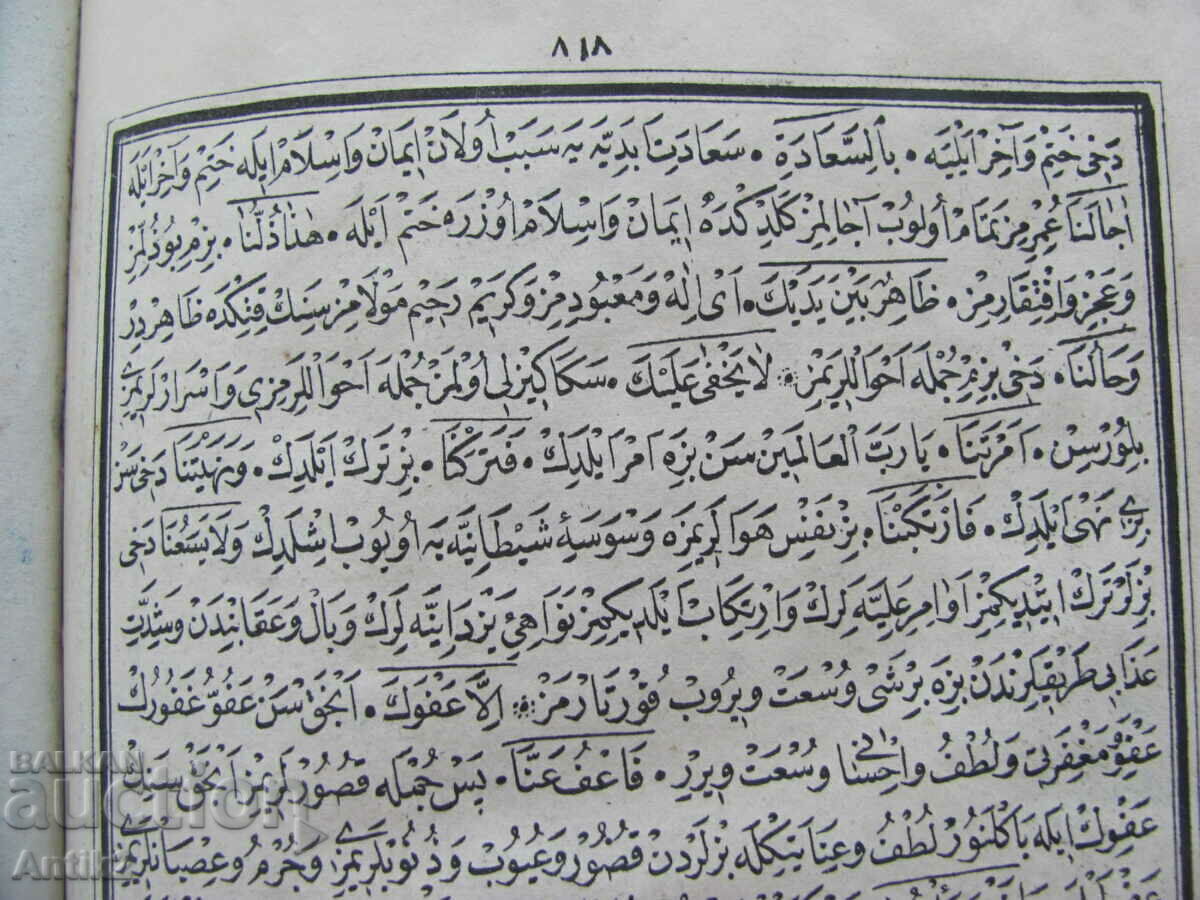 ٨١٨
دخى ختم و آخر ايليه • بالسَّعَادَةِ • سعادت ابديه يه سبب اولان ايمان و اسلام ايله ختم و آخر ايله
اٰجَالَنَا عمرمز تمام اولوب آجالمز كلدكده ايمان و اسلام اوزره ختم ايله • هٰذَا ذُلُّنَا • بزم بو ذلمز
و عجز و افتقارمز • ظَاهِرٌ بَيْنَ يَدَيْكَ • اى اله و معبودمز و كريم رحيم مولامز سنك قتكده ظاهردر
وَحَالُنَا • دخى بزم جمله احواللريمز لَا يَخْفٰى عَلَيْكَ • سكا كيزلى اولمز جمله احواللرمزى و اسرارلريمزى
بلورسن • اَمَرْتَنَا • يا رب العالمين سن بزه امر ايلدك • فَتَرَكْنَا • بز ترك ايلدك • وَنَهَيْتَنَا دخى سن
بزى نهى ايلدك • فَارْتَكَبْنَا • بز نفس هوالريمزه وسوسهٔ شيطانيه يه اويوب اشلدك وَلَا يَسَعُنَا دخى
بزلر ترك ايتديكمز اوامر عليه لرك و ارتكاب ايلديكيمز نواهئ يزدانيه لرك وبال و عقابندن و شدت
عذابى طريقلرندن بزه برشى وسعت ويروب قورتارمز اِلَّا عَفْوُكَ • انجق سن عفوّ غفورك
عفو و مغفرتى و لطف و احسانى وسعت ويرر • فَاعْفُ عَنَّا • پس جمله قصورلريمز انجق سنك
عفوك ايله باكلنور لطف و عنايتكله بزلردن قصور و عيوب و ذنوبلريمزى و جرم و عصيانلريمزى
BALKAN
auction
Antik